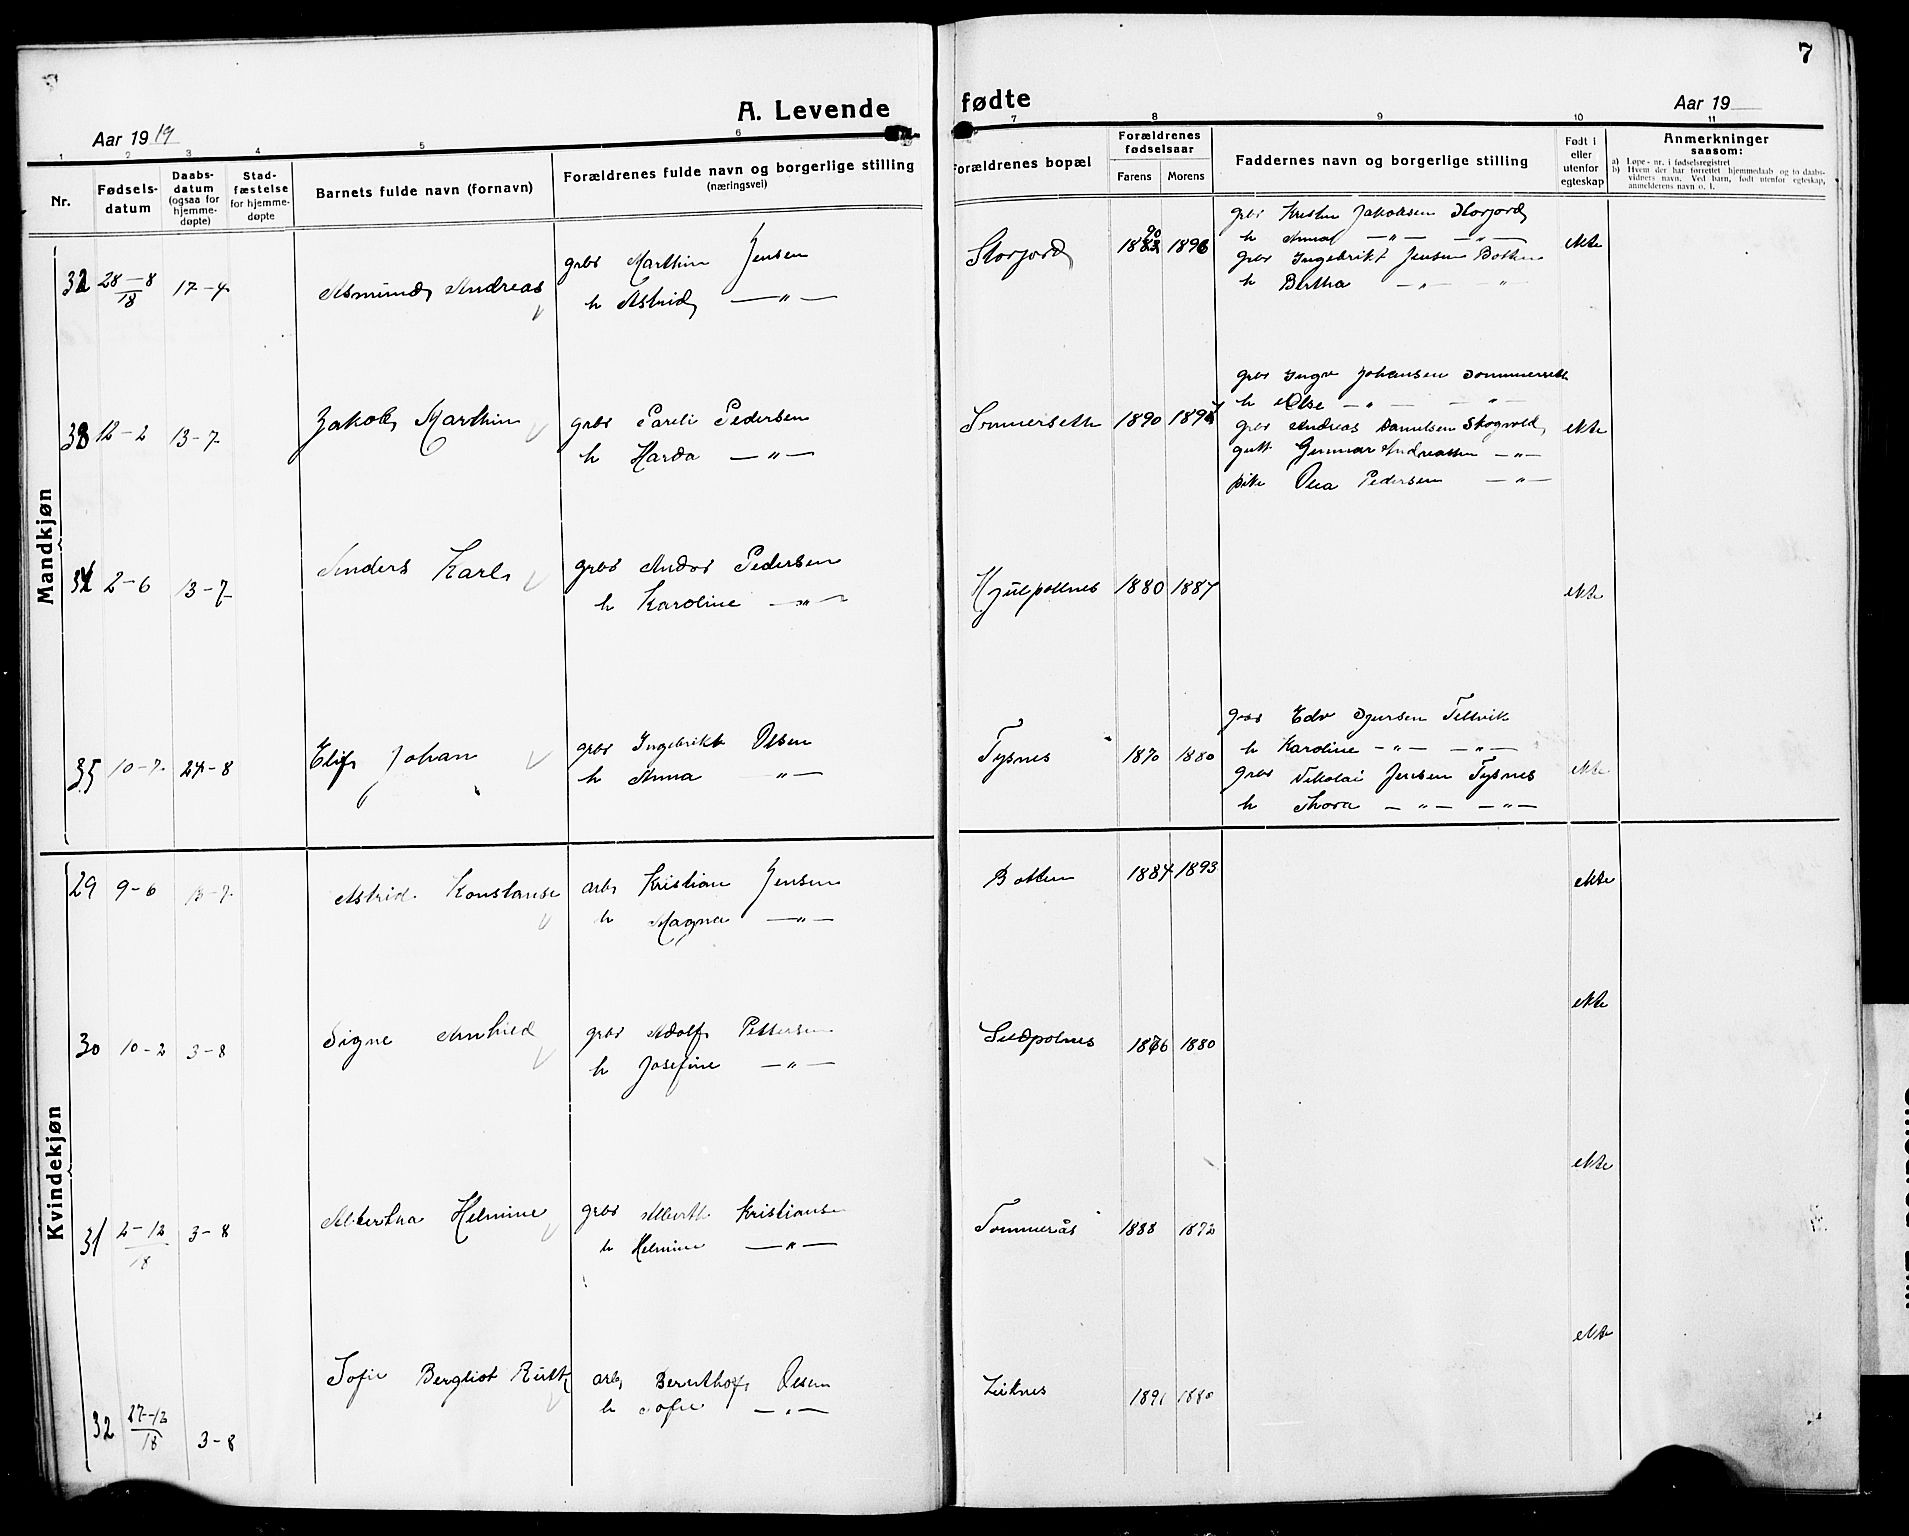 7
A. Levende fødte
Aar 1919
Aar 19
1 2 3 4 5 6 7 8 9 10 11
Nr.
Fødsels-
datum
Daabs-
datum
(ogsaa for
hjemme-
døpte)
Stad-
fæstelse
for hjemme-
døpte
Barnets fulde navn (fornavn)
Forældrenes fulde navn og borgerlige stilling
(næringsvei)
Forældrenes bopæl
Forældrenes
fødselsaar
Farens Morens
Faddernes navn og borgerlige stilling
Født i
eller
utenfor
egteskap
Anmerkninger
saasom:
a) Løpe-nr. i fødselsregistret
b) Hvem der har forrettet hjemmedaab og to daabs-
vidners navn. Ved barn, født utenfor egteskap,
anmelderens navn o. l.
Mandkjøn
32 28-8/18 17-4 Asmund Andreas
gbr Marthin Jensen
h Astrid —"—
Storjord 1890 1896
gbr Kristen Jakobsen Storjord
h Anna —"— —"—
gbr Ingebrikt Jensen Botten
h Bertha —"— "
ekte
33 12-2 13-7 Jakob Marthin
gbr Pareli Pedersen
h Harda —"—
Sommersette 1890 189
gbr Ingv Johansen Sommersette
h Else —"— —"—
gbr Andreas Danielsen Skogvold
gutt Gunnar Andreassen —"—
pike Olea Pedersen —"—
ekte
34 2-6 13-7 Anders Karl
gbr Andor Pedersen
h Karoline —"—
Hjulpollnes 1880 1887
ekte
35 10-7 24-8 Elif Johan
gbr Ingebrikt Olsen
h Anna —"—
Tysnes 1870 1880
gbr Edv Sjursen Tellvik
h Karoline —"— —"—
gbr Nikolai Jensen Tysnes
h Thora —"— —"—
ekte
Kvindekjøn
29 9-6 13-7 Astrid Konstanse
arb Kristian Jensen
h Magna —"—
Botten 1884 1893
ekte
30 10-2 3-8 Signe Arnhild
gbr Adolf Pettersen
h Josefine —"—
1876 1880
ekte
31 2-12/18 3-8 Albertha Helmine
gbr Alberth Kristianse
h Helmine —"—
Tommerås 1888 1872
ekte
32 27-12/18 3-8 Sofie Bergliot Ruth
arb Bernthof Olsen
h Sofie —"—
1891 1880
ekte